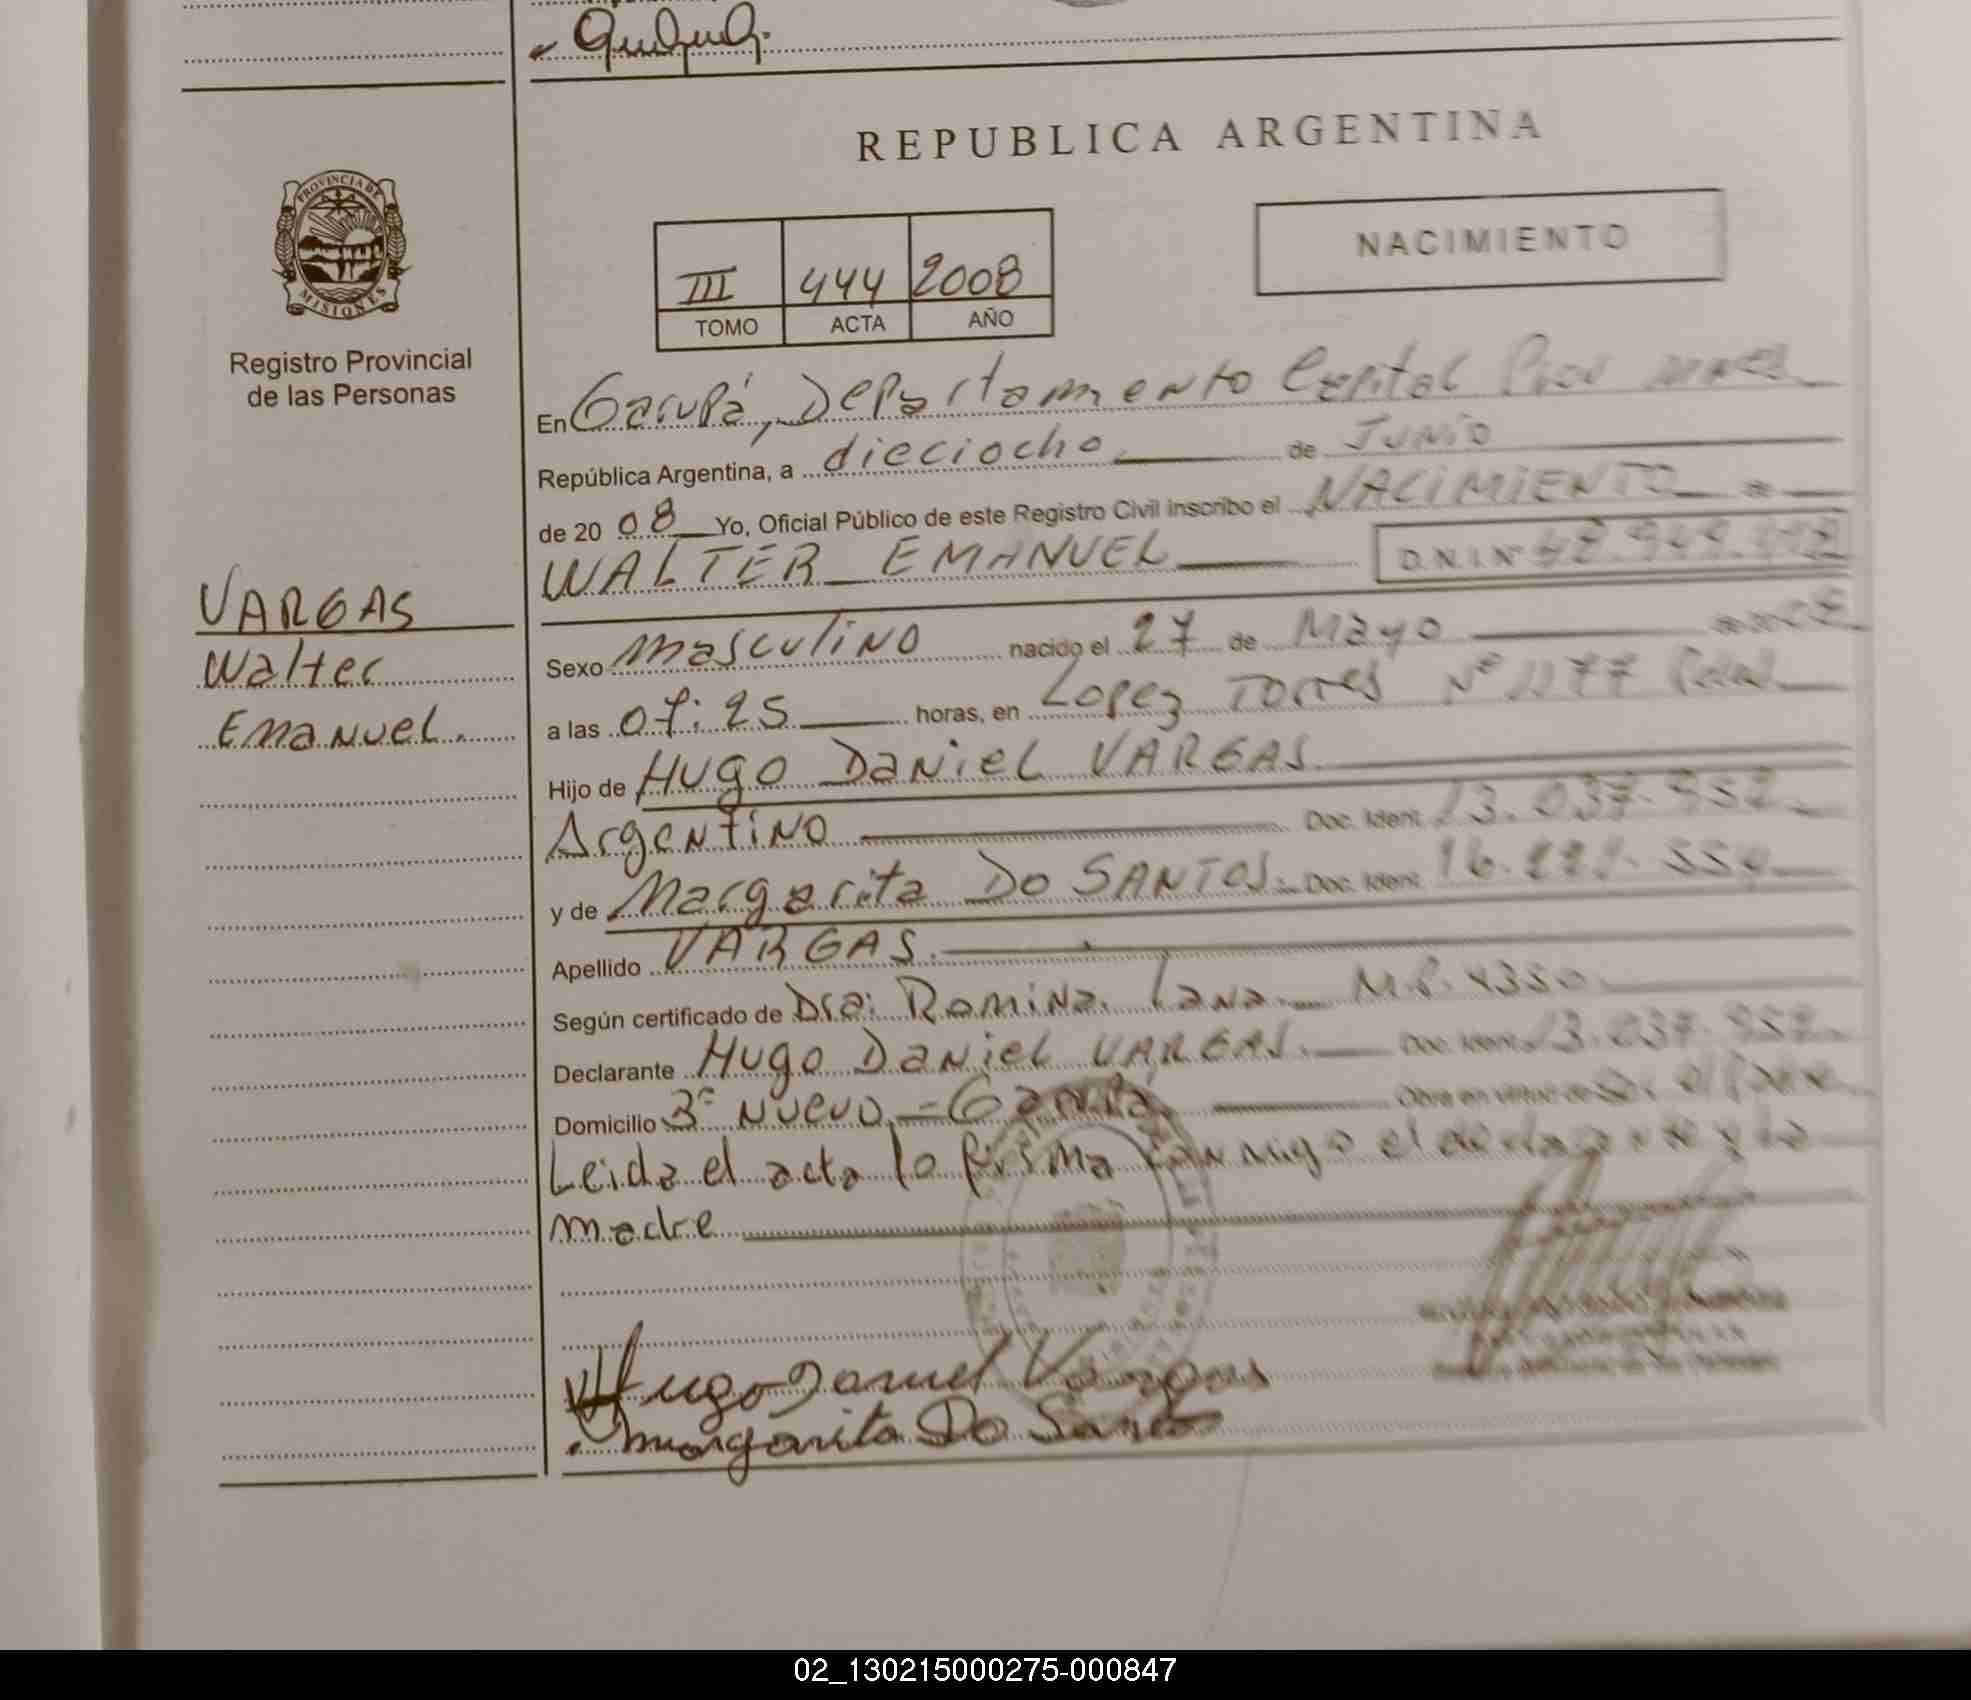 REPUBLICA ARGENTINA
PROVINCIA DE MISIONES
Registro Provincial
de las Personas
NACIMIENTO
III 444 2008
TOMO ACTA AÑO
En Garupá, Departamento Capital
República Argentina, a dieciocho de Junio
de 20 08 Yo, Oficial Público de este Registro Civil inscribo el NACIMIENTO de
WALTER EMANUEL D.N.I.Nº
VARGAS
Walter
Emanuel.
Sexo masculino nacido el 27 de Mayo
a las 07:25 horas, en Lopez Torres Nº 1177
Hijo de Hugo Daniel VARGAS.
Argentino Doc. Ident. 13.037.957
y de Margarita Do SANTOS. Doc. Ident.
Apellido VARGAS.
Según certificado de Dra: Romina Lana. M.P. 4350
Declarante Hugo Daniel VARGAS. Doc. Ident. 13.037.957
Domicilio Bº Nuevo - Garupá Obra en virtud de
Leida el acta la firma conmigo el declarante y la
madre
Hugo Daniel Vargas
margarita Do Santo
02_130215000275-000847